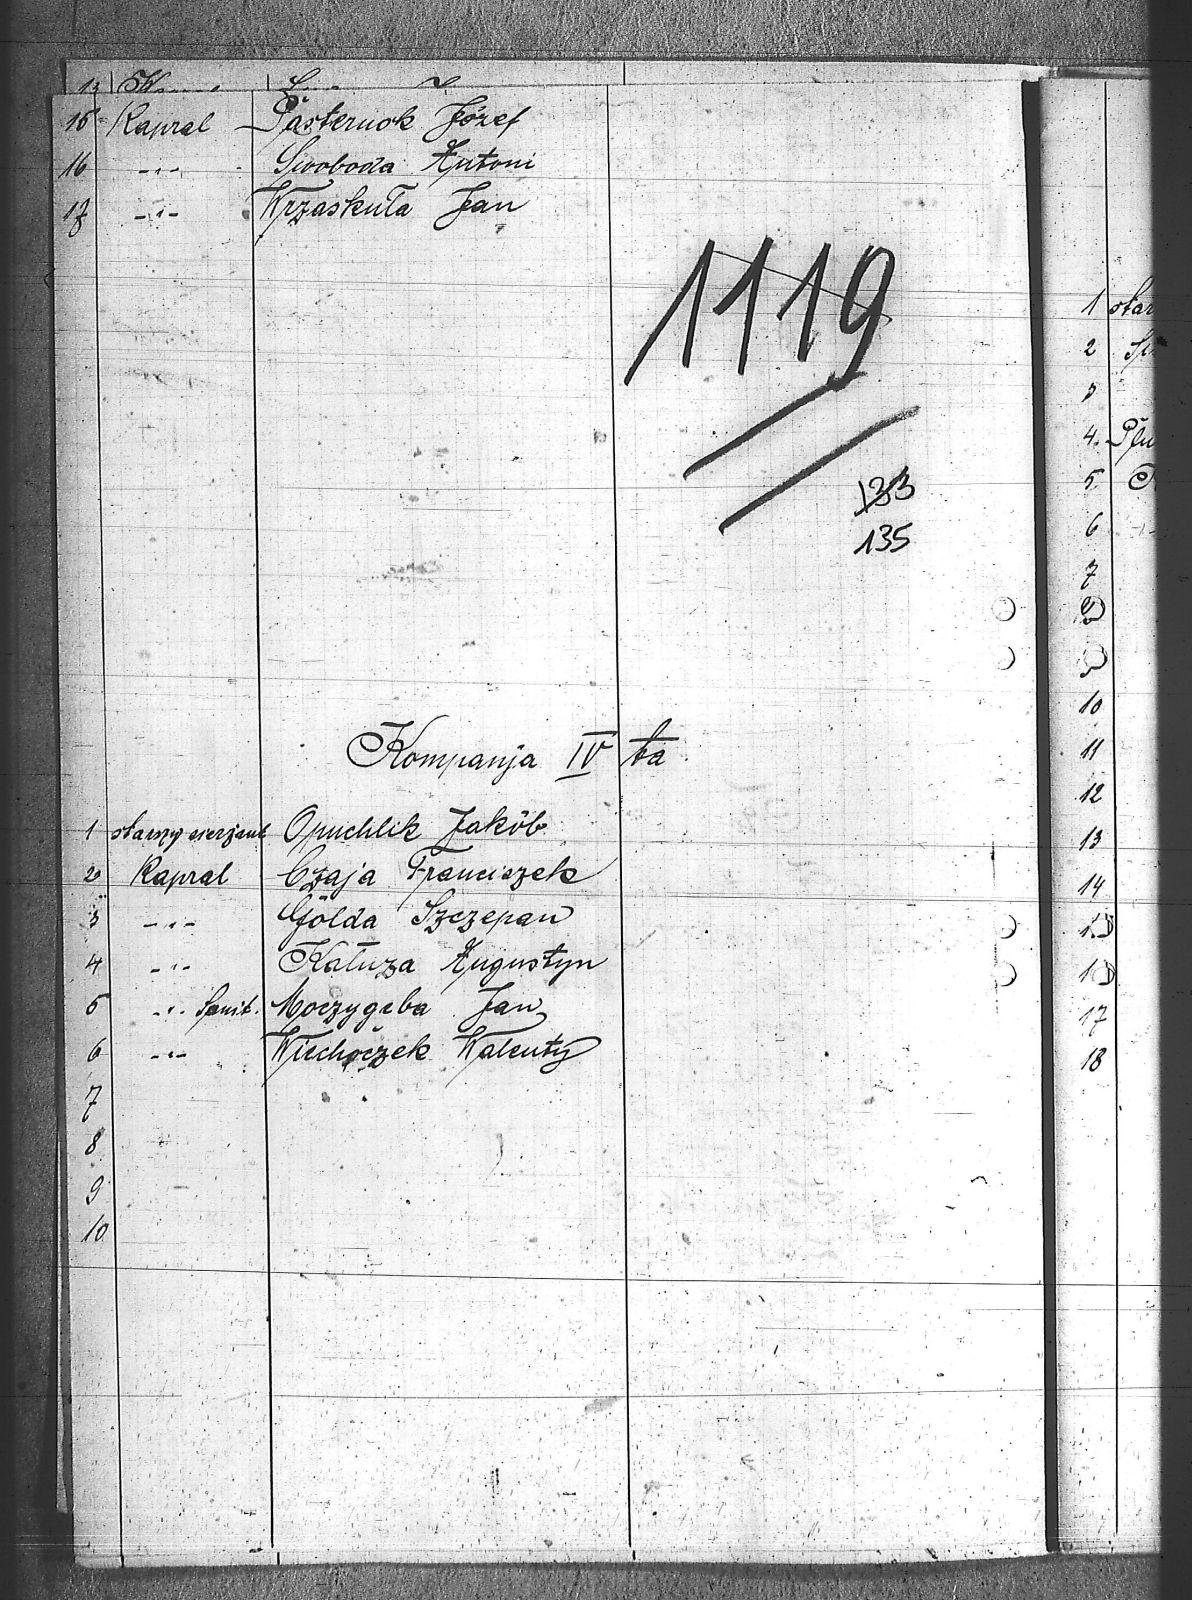 15 Kapral Pasternok Józef
16 -"- Swoboda Antoni
17 -"- Wrzaskuła Jan
1119
133
135
Kompanja IV ta
1 starszy sierzant Opuchlik Jakób
2 Kapral Czaja Franciszek
3 -"- Gölda Szczepan
4 -"- Kałuza Augustyn
5 -"- Sanit. Moczygęba Jan
6 -"- Wiechoczek Walenty
7
8
9
10
1 star
2
3
4.
5
6
7
10
11
12
13
14
17
18